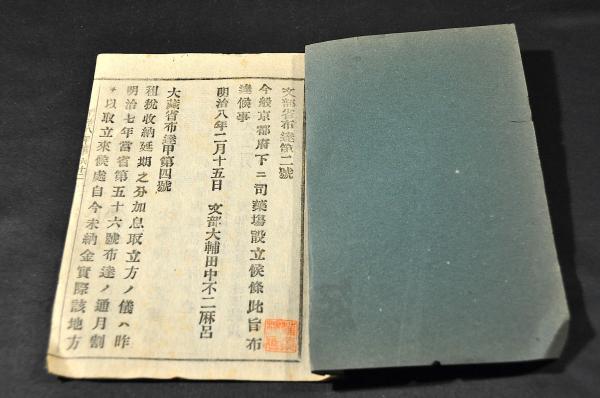 文部省布達第二號
今般京都府下ニ司藥塲設立候條此旨布
達候事
明治八年二月十五日　文部大輔田中不二麻呂
大藏省布達甲第四號
租税收納延期之分加息取立方ノ儀ハ昨
明治七年當省第五十六號布達ノ通月割
ヲ以取立來候處自今未納金實際該地方